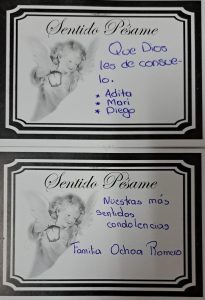 Sentido Pésame
Que Dios
les de consue-
lo.
* Adita
* Mari
* Diego
Sentido Pésame
Nuestras más
sentidos
condolencias
Familia Ochoa Romero